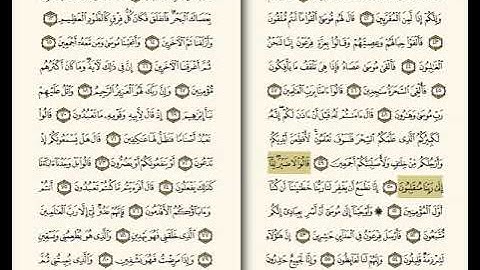 وَإِنَّكُمْ إِذًا لَّمِنَ ٱلْمُقَرَّبِينَ ٤٢ قَالَ لَهُم مُّوسَىٰٓ أَلْقُوا۟ مَآ أَنتُم مُّلْقُونَ
٤٣ فَأَلْقَوْا۟ حِبَالَهُمْ وَعِصِيَّهُمْ وَقَالُوا۟ بِعِزَّةِ فِرْعَوْنَ إِنَّا لَنَحْنُ
ٱلْغَٰلِبُونَ ٤٤ فَأَلْقَىٰ مُوسَىٰ عَصَاهُ فَإِذَا هِىَ تَلْقَفُ مَا يَأْفِكُونَ
٤٥ فَأُلْقِىَ ٱلسَّحَرَةُ سَٰجِدِينَ ٤٦ قَالُوٓا۟ ءَامَنَّا بِرَبِّ ٱلْعَٰلَمِينَ ٤٧
رَبِّ مُوسَىٰ وَهَٰرُونَ ٤٨ قَالَ ءَامَنتُمْ لَهُۥ قَبْلَ أَنْ ءَاذَنَ لَكُمْ إِنَّهُۥ
لَكَبِيرُكُمُ ٱلَّذِى عَلَّمَكُمُ ٱلسِّحْرَ فَلَسَوْفَ تَعْلَمُونَ لَأُقَطِّعَنَّ أَيْدِيَكُمْ
وَأَرْجُلَكُم مِّنْ خِلَٰفٍ وَلَأُصَلِّبَنَّكُمْ أَجْمَعِينَ ٤٩ قَالُوا۟ لَا ضَيْرَ إِنَّآ
إِلَىٰ رَبِّنَا مُنقَلِبُونَ ٥٠ إِنَّا نَطْمَعُ أَن يَغْفِرَ لَنَا رَبُّنَا خَطَٰيَٰنَآ أَن كُنَّآ
أَوَّلَ ٱلْمُؤْمِنِينَ ٥١ ۞ وَأَوْحَيْنَآ إِلَىٰ مُوسَىٰٓ أَنْ أَسْرِ بِعِبَادِىٓ إِنَّكُم
مُّتَّبَعُونَ ٥٢ فَأَرْسَلَ فِرْعَوْنُ فِى ٱلْمَدَآئِنِ حَٰشِرِينَ ٥٣ إِنَّ هَٰٓؤُلَآءِ
لَشِرْذِمَةٌ قَلِيلُونَ ٥٤ وَإِنَّهُمْ لَنَا لَغَآئِظُونَ ٥٥ وَإِنَّا لَجَمِيعٌ حَٰذِرُونَ
بِّعَصَاكَ ٱلْبَحْرَ فَٱنفَلَقَ فَكَانَ كُلُّ فِرْقٍ كَٱلطَّوْدِ ٱلْعَظِيمِ ٦٣
وَأَزْلَفْنَا ثَمَّ ٱلْءَاخَرِينَ ٦٤ وَأَنجَيْنَا مُوسَىٰ وَمَن مَّعَهُۥٓ أَجْمَعِينَ ٦٥
ثُمَّ أَغْرَقْنَا ٱلْءَاخَرِينَ ٦٦ إِنَّ فِى ذَٰلِكَ لَءَايَةً وَمَا كَانَ أَكْثَرُهُم
مُّؤْمِنِينَ ٦٧ وَإِنَّ رَبَّكَ لَهُوَ ٱلْعَزِيزُ ٱلرَّحِيمُ ٦٨ وَٱتْلُ عَلَيْهِمْ
نَبَأَ إِبْرَٰهِيمَ ٦٩ إِذْ قَالَ لِأَبِيهِ وَقَوْمِهِۦ مَا تَعْبُدُونَ ٧٠ قَالُوا۟
نَعْبُدُ أَصْنَامًا فَنَظَلُّ لَهَا عَٰكِفِينَ ٧١ قَالَ هَلْ يَسْمَعُونَكُمْ إِذْ
تَدْعُونَ ٧٢ أَوْ يَنفَعُونَكُمْ أَوْ يَضُرُّونَ ٧٣ قَالُوا۟ بَلْ وَجَدْنَآ ءَابَآءَنَا
كَذَٰلِكَ يَفْعَلُونَ ٧٤ قَالَ أَفَرَءَيْتُم مَّا كُنتُمْ تَعْبُدُونَ ٧٥ أَنتُمْ
وَءَابَآؤُكُمُ ٱلْأَقْدَمُونَ ٧٦ فَإِنَّهُمْ عَدُوٌّ لِّىٓ إِلَّا رَبَّ ٱلْعَٰلَمِينَ
٧٧ ٱلَّذِى خَلَقَنِى فَهُوَ يَهْدِينِ ٧٨ وَٱلَّذِى هُوَ يُطْعِمُنِى وَيَسْقِينِ
٧٩ وَإِذَا مَرِضْتُ فَهُوَ يَشْفِينِ ٨٠ وَٱلَّذِى يُمِيتُنِى ثُمَّ